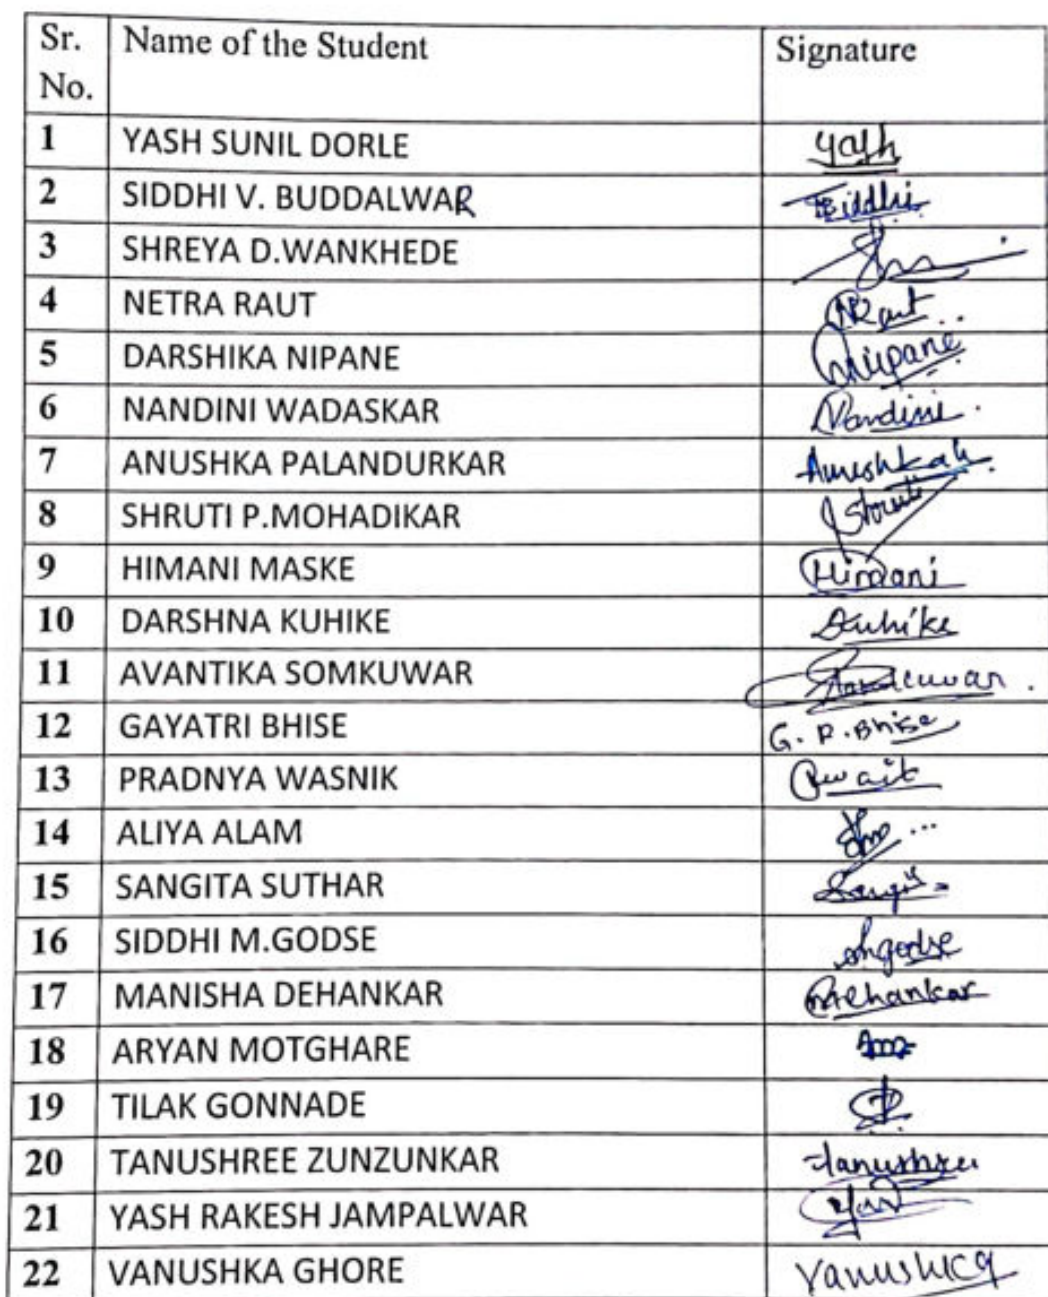 Sr. No. Name of the Student Signature
1 YASH SUNIL DORLE Yash
2 SIDDHI V. BUDDALWAR Siddhi
3 SHREYA D.WANKHEDE
4 NETRA RAUT NRaut
5 DARSHIKA NIPANE Nipane
6 NANDINI WADASKAR Nandini
7 ANUSHKA PALANDURKAR Anushkah
8 SHRUTI P.MOHADIKAR Shruti
9 HIMANI MASKE Himani
10 DARSHNA KUHIKE Kuhike
11 AVANTIKA SOMKUWAR
12 GAYATRI BHISE G. R. Bhise
13 PRADNYA WASNIK
14 ALIYA ALAM
15 SANGITA SUTHAR
16 SIDDHI M.GODSE
17 MANISHA DEHANKAR
18 ARYAN MOTGHARE
19 TILAK GONNADE
20 TANUSHREE ZUNZUNKAR Tanushree
21 YASH RAKESH JAMPALWAR
22 VANUSHKA GHORE Vanushka